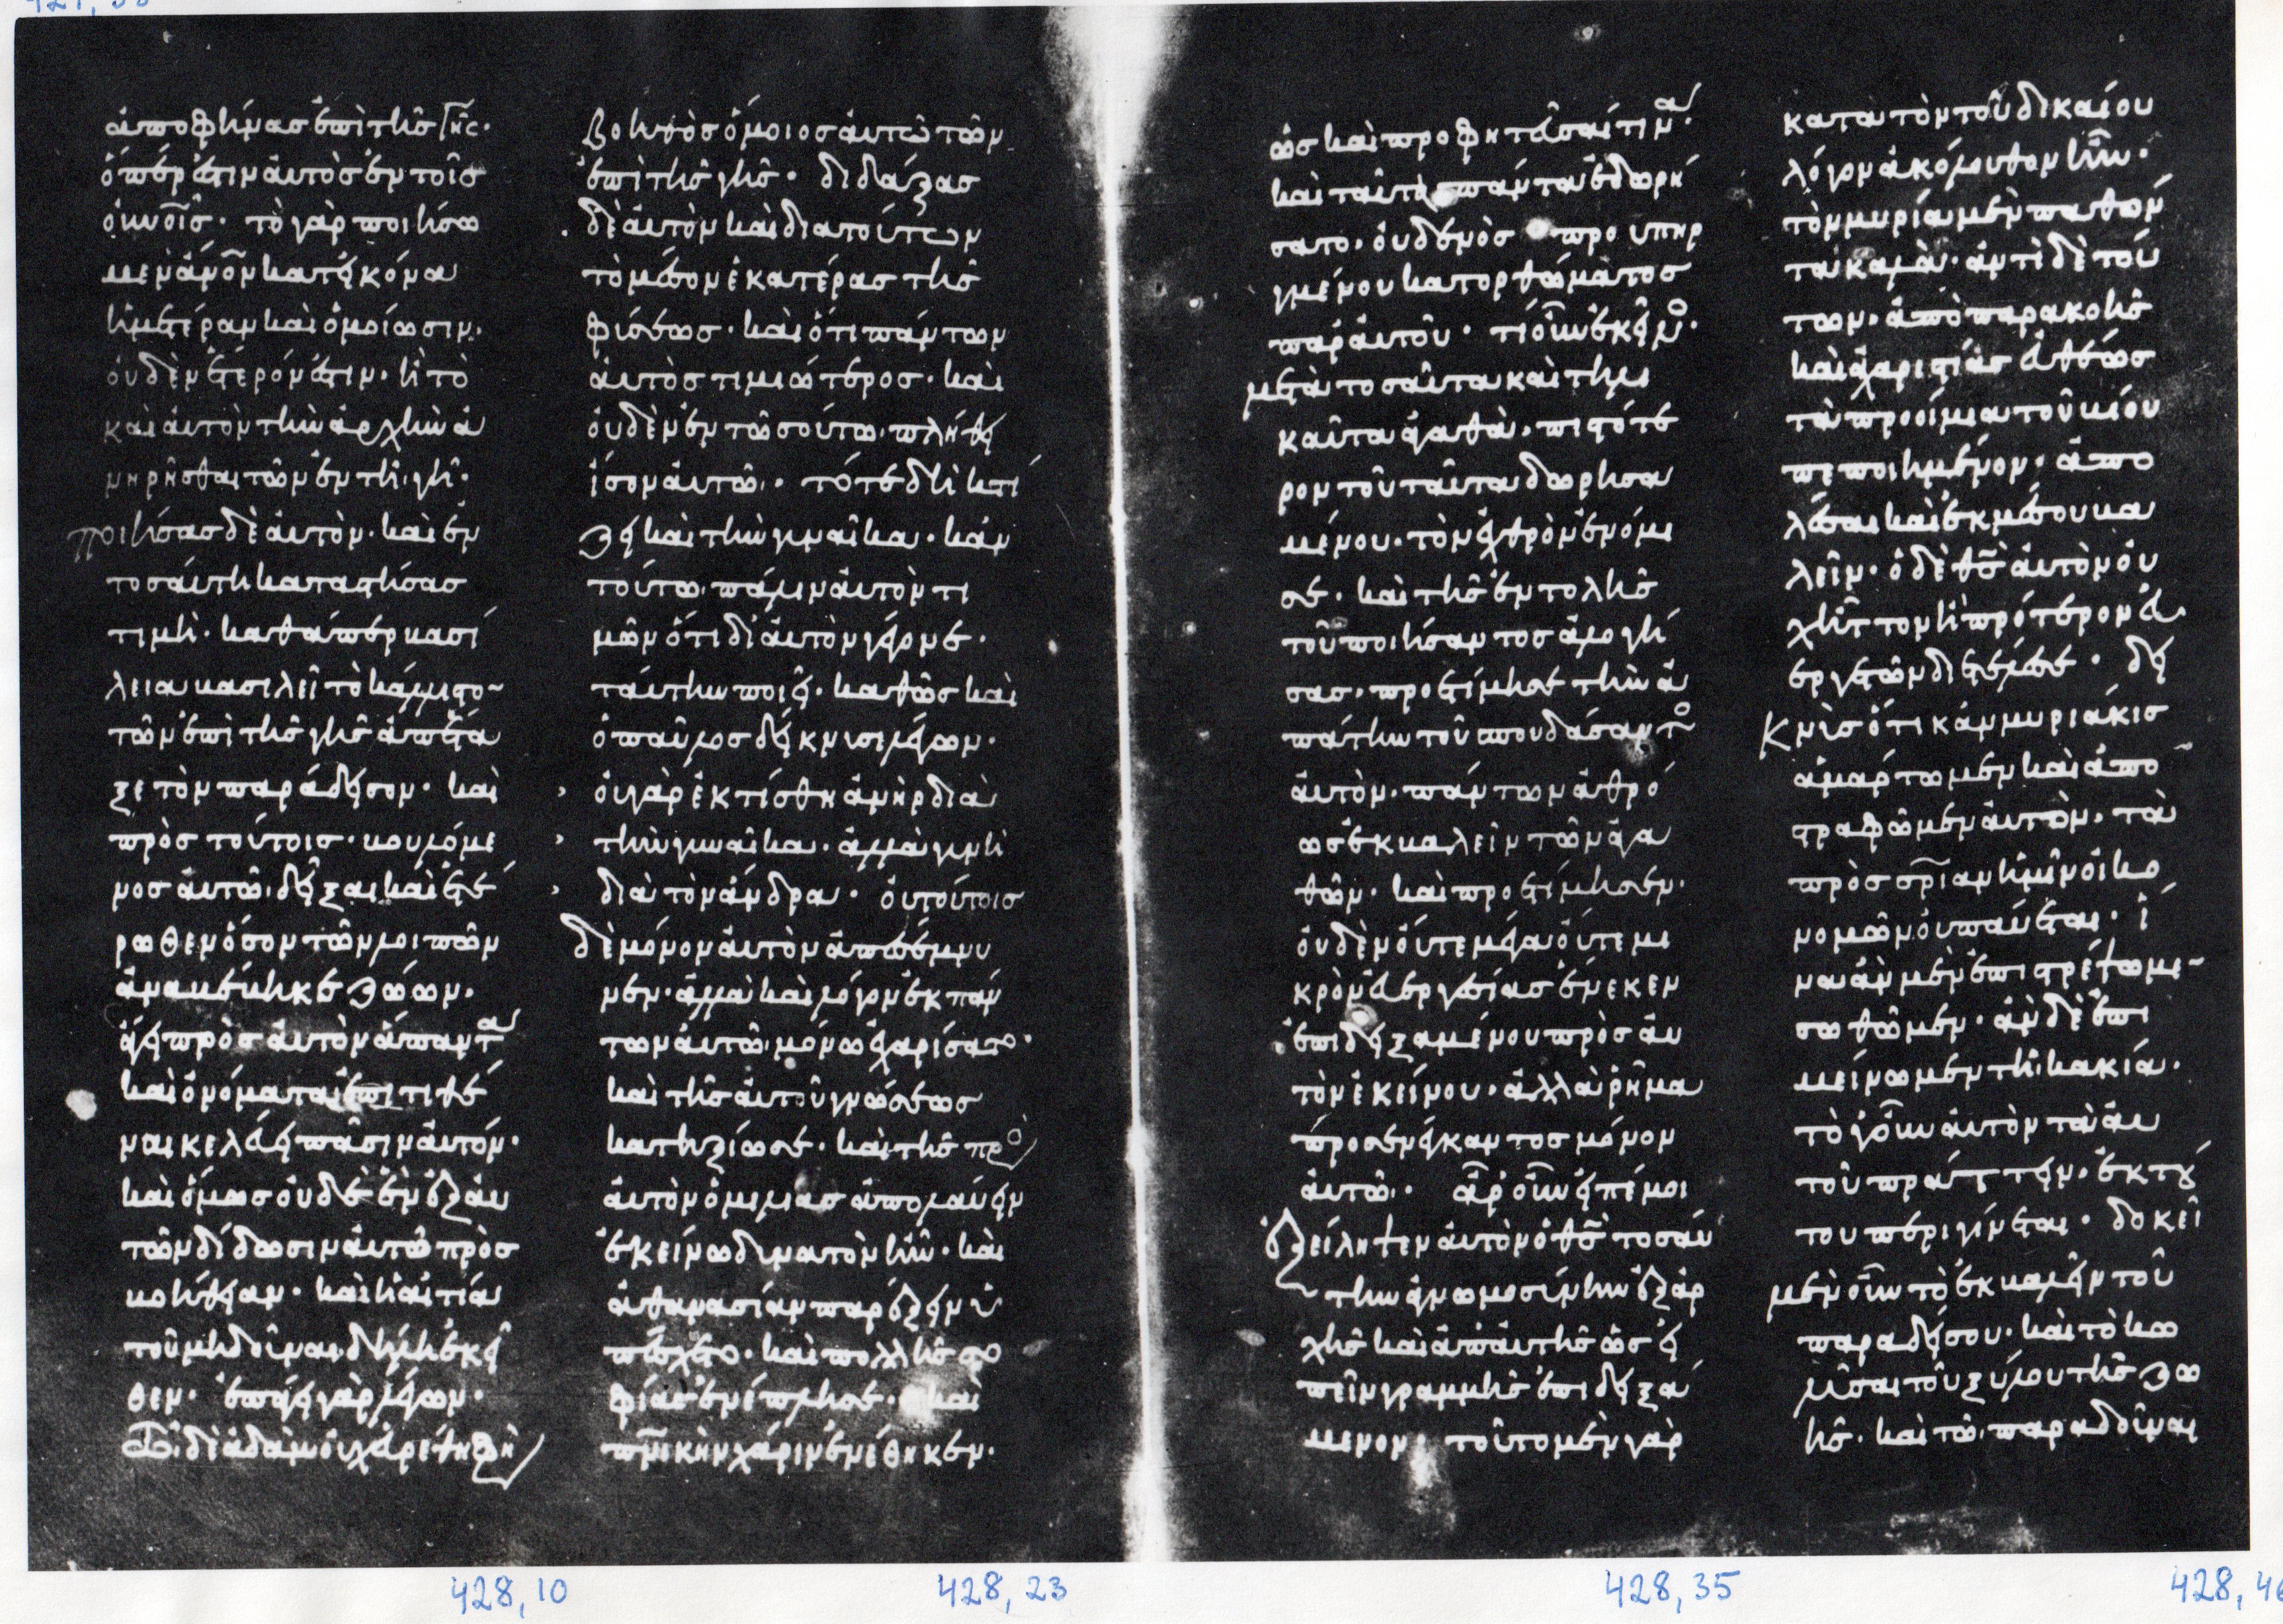 ἀποφήνας ἐπὶ τῆς γῆς·
ὅπερ ἐστὶν αὐτὸς ἐν τοῖς
οὐνοῖς· τὸ γὰρ ποιήσω
μεν ἄνον κατ εἰκόνα
ἡμετέραν καὶ ὁμοίωσιν·
οὐδὲν ἕτερόν ἐστιν· ἢ τὸ
καὶ αὐτὸν τὴν ἀρχὴν ἀ
νηρῆσθαι τῶν ἐν τῆ γῆ·
ποιήσας δὲ αὐτὸν· καὶ ἐν
τοσαύτη καταστήσας
τιμῆ· καθάπερ βασί
λεια βασιλεῖ τὸ κάλλιστο
τῶν ἐπὶ τῆς γῆς ἀπέτα
ξε τὸν παράδεισον· καὶ
πρὸς τούτοις· βουλόμε
νος αὐτῶ δεῖξαι καὶ ἑτέ
ρωθεν ὅσον τῶν λοιπῶν
ἀναβέβηκε ζώων·
ἄγει πρὸς αὐτὸν ἅπαντα
καὶ ὀνόματα ἐπιτιθέ
ναι κελεύει πᾶσιν αὐτόν·
καὶ ὅμως οὐδὲ ἓν ἐξ αὐ
τῶν δίδωσιν αὐτῶ πρὸς
βοήθειαν· καὶ ἡ αἰτία
τοῦ μὴ δοῦναι δήλη ἐκεῖ
θεν· ἐπάγει γὰρ λέγων·
Τῶ δὲ ἀδὰμ οὐχ εὑρέθη βοη
βοηθὸς ὅμοιος αὐτῶ τῶν
ἐπὶ τῆς γῆς· διδάξας
δὲ αὐτὸν καὶ διὰ τούτων
τὸ μέσον ἑκατέρας τῆς
φύσεως· καὶ ὅτι πάντων
αὐτὸς τιμιώτερος· καὶ
οὐδὲν ἐν τοσούτω πλήθει
ἴσον αὐτῶ· τότε δὴ κτί
ζει καὶ τὴν γυναῖκα· κἀν
τούτω πάλιν αὐτὸν τι
μῶν ὅτι δι αὐτὸν γέγονε·
ταύτην ποιεῖ· καθὼς καὶ
ὁ παῦλος δείκνυσι λέγων·
οὐ γὰρ ἐκτίσθη ἀνὴρ διὰ
τὴν γυναῖκα· ἀλλὰ γυνὴ
διὰ τὸν ἄνδρα· οὐ τούτοις
δὲ μόνον αὐτὸν ἀπεσέμνυ
νεν· ἀλλὰ καὶ λόγον ἐκ πάν
των αὐτῶ μόνω ἐχαρίσατο·
καὶ τῆς αὐτοῦ γνώσεως
κατηξίωσε· καὶ τῆς πρὸ
αὐτὸν ὁμιλίας ἀπολαύειν
ἐκείνω δυνατὸν ἦν· καὶ
ἀθανασίαν παρέξειν ὑ
πέσχετο· καὶ πολλῆς σο
φίας ἐνέπλησε· καὶ
πνικὴν χάριν ἐνέθηκεν·
ὡς καὶ προφητεῦσαί τινα·
καὶ ταῦτα πάντα ἐδωρή
σατο· οὐδενὸς προυπηρ
γμένου κατορθώματος
παρ αὐτοῦ· τί οὖν ἐκεῖνο·
μετὰ τοσαῦτα καὶ τηλι
καῦτα ἀγαθὰ· πιστότε
ρον τοῦ ταῦτα δωρησα
μένου· τὸν ἐχθρὸν ἐνόμι
σε· καὶ τῆς ἐντολῆς
τοῦ ποιήσαντος ἀλογή
σας· προετίμησε τὴν ἀ
πάτην τοῦ σπουδάσαντο
αὐτὸν· πάντων ἀθρό
ως ἐκβαλεῖν τῶν ἀγα
θῶν· καὶ προετίμησεν·
οὐδὲν οὔτε μέγα οὔτε μι
κρὸν εὐεργεσίας ἕνεκεν
ἐπιδειξαμένου πρὸς αὐ
τὸν ἐκείνου· ἀλλὰ ῥῆμα
προσενεγκαντος μόνον
αὐτῶ· ἆρ οὖν εἰπέ μοι
ἐξείληφεν αὐτὸν ὁ θς τοσαύ
την ἀγνωμοσύνην ἐξ ἀρ
χῆς καὶ ἀπ αὐτῆς ὡς εἰ
πεῖν γραμμῆς ἐπιδειξά
μενον· τοῦτο μὲν γὰρ
κατὰ τὸν τοῦ δικαίου
λόγον ἀκόλουθον ἦν·
τὸν μυρία μὲν παθόν
τα καλὰ· ἀντὶ δὲ τού
των· ἀπὸ παρακοῆς
καὶ ἀχαριστίας εὐθέως
τὰ προοίμια τοῦ βίου
πεποιημένον· ἀπο
λέσαι καὶ ἐκ μέσου βα
λεῖν· ὁ δὲ θς αὐτὸν οὐ
χ ἧττον ἢ πρότερον εὐ
εργετῶν διετέλεσε· δει
κνὺς ὅτι κἂν μυριάκις
ἁμάρτωμεν καὶ ἀπο
στραφῶμεν αὐτὸν· τὰ
πρὸς σρίαν ἡμῖν οἰκο
νομῶν οὐ παύεται· ἵ
να ἂν μὲν ἐπιστρέψωμε
σωθῶμεν· ἂν δὲ ἐπι
μείνωμεν τῆ κακία·
τὸ γοῦν αὐτὸν τὰ ἑαυ
τοῦ πράττειν· ἐκ τού
του περιγίνεται· δοκεῖ
μὲν οὖν τὸ ἐκβαλεῖν τοῦ
παραδείσου· καὶ τὸ κω
λῦσαι τοῦ ξύλου τῆς ζω
ῆς· καὶ τῶ παραδοῦναι
428,10 428,23 428,35